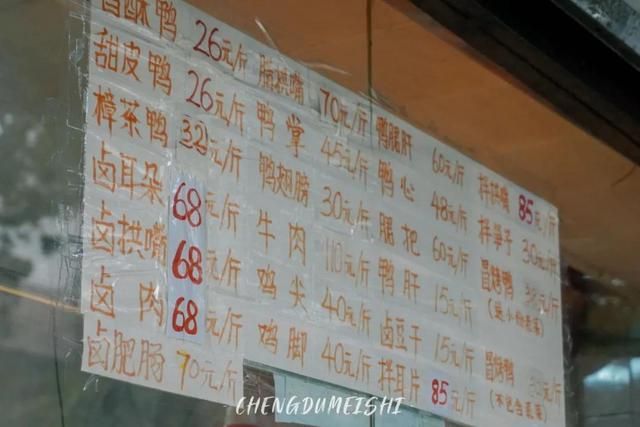 香酥鸭 26元/斤 腊拱嘴 70元/斤 60元/斤 拌拱嘴 85元/斤
甜皮鸭 26元/斤 鸭掌 45元/斤 鸭心 48元/斤 拌笋子 30元/斤
樟茶鸭 32元/斤 鸭翅膀 30元/斤 60元/斤 冒烤鸭 元/斤
卤耳朵 68元/斤 牛肉 110元/斤 鸭肝 15元/斤
卤拱嘴 68元/斤 鸡尖 40元/斤 卤豆干 15元/斤 冒烤鸭 元/斤
卤肉 68元/斤 鸡脚 40元/斤 拌耳片 85元/斤
卤肥肠 70元/斤
CHENGDUMEISHI